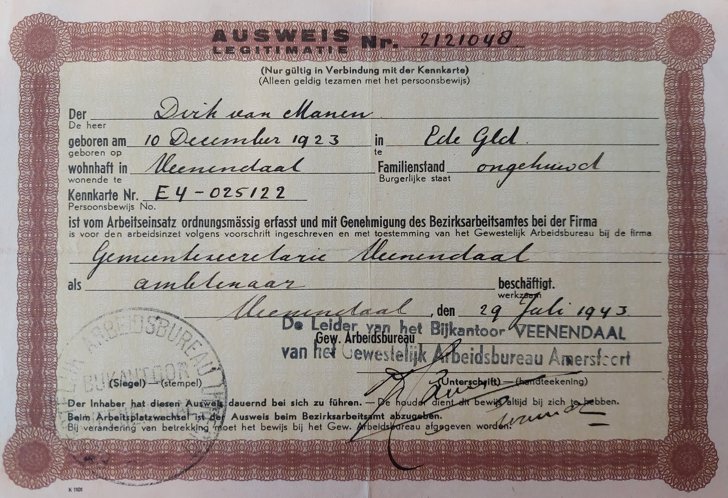 AUSWEIS
LEGITIMATIE Nr. 2121048
(Nur gültig in Verbindung mit der Kennkarte)
(Alleen geldig tezamen met het persoonsbewijs)
Der Dirk van Manen
De heer
geboren am 10 December 1923 in Ede Gld
geboren op te
wohnhaft in Veenendaal Familienstand ongehuwd
wonende te Burgerlijke staat
Kennkarte Nr. E4-025122
Persoonsbewijs No.
ist vom Arbeitseinsatz ordnungsmässig erfasst und mit Genehmigung des Bezirksarbeitsamtes bei der Firma
is voor den arbeidsinzet volgens voorschrift ingeschreven en met toestemming van het Gewestelijk Arbeidsbureau bij de firma
Gemeentesecretarie Veenendaal
als ambtenaar beschäftigt.
werkzaam
Veenendaal, den 29 Juli 1943
De Leider van het Bijkantoor VEENENDAAL
Gew. Arbeidsbureau
van het Gewestelijk Arbeidsbureau Amersfoort
ARBEIDSBUREAU
BIJKANTOOR
(Siegel) — (stempel) (Unterschrift) — (handteekening)
Der Inhaber hat diesen Ausweis dauernd bei sich zu führen. — De houder dient dit bewijs altijd bij zich te hebben.
Beim Arbeitsplatzwechsel ist der Ausweis beim Bezirksarbeitsamt abzugeben.
Bij verandering van betrekking moet het bewijs bij het Gew. Arbeidsbureau afgegeven worden.